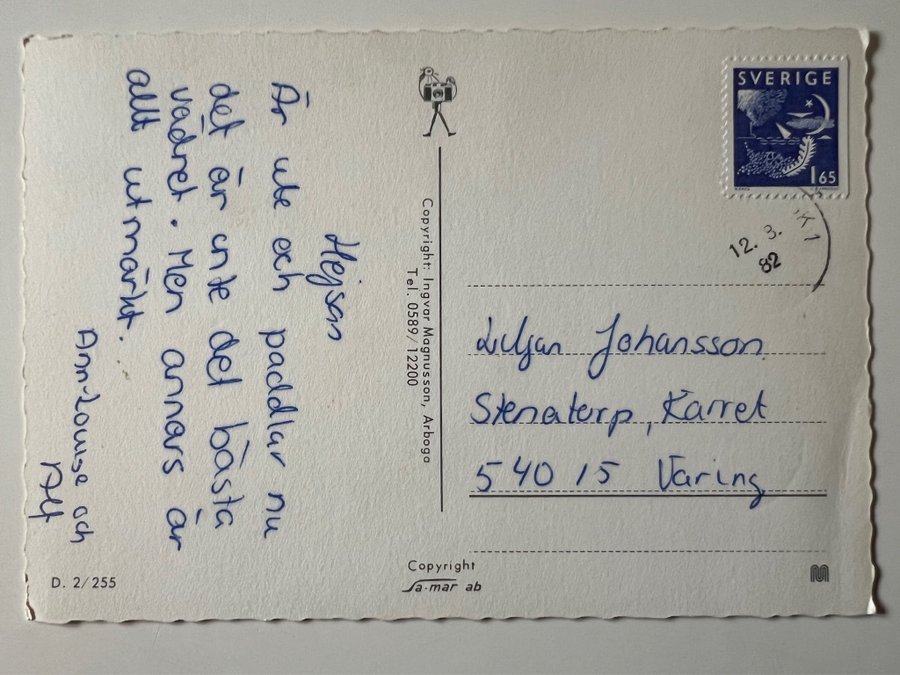 Hejsan
Är ute och paddlar nu
det är inte det bästa
vädret. Men annars är
allt utmärkt.
Ann-Louise och
Alf
Copyright: Ingvar Magnusson, Arboga
Tel. 0589/12200
SVERIGE
1 65
12. 3.
82
Liljan Johansson
Stenatorp, Karret
540 15 Väring
D. 2/255
Copyright
Sa-mar ab